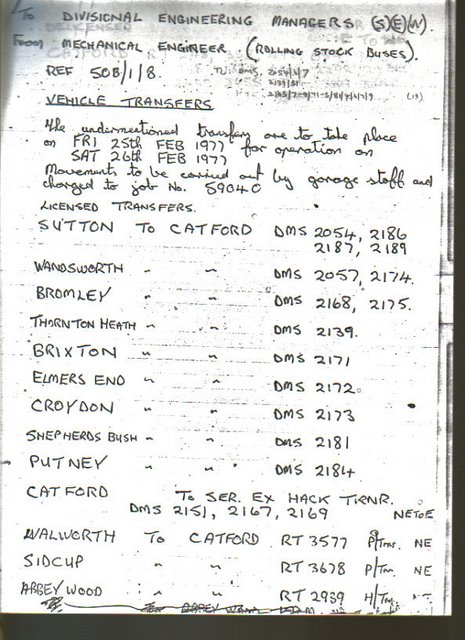 To DIVISIONAL ENGINEERING MANAGERS (S)(E)(W)
From MECHANICAL ENGINEER (ROLLING STOCK BUSES).
REF SOB/1/8.
VEHICLE TRANSFERS
The undermentioned transfers are to take place
on FRI 25th FEB 1977 for operation on
SAT 26th FEB 1977
Movements to be carried out by garage staff and
charged to job No. 59040
LICENSED TRANSFERS.
SUTTON To CATFORD DMS 2054, 2186
2187, 2189
WANDSWORTH " " DMS 2057, 2174.
BROMLEY " " DMS 2168, 2175.
THORNTON HEATH " " DMS 2139.
BRIXTON " " DMS 2171
ELMERS END " " DMS 2172.
CROYDON " " DMS 2173
SHEPHERDS BUSH " " DMS 2181
PUTNEY " " DMS 2184.
CATFORD To SER. EX HACK TRNR.
DMS 2151, 2167, 2169 NETOE
WALWORTH To CATFORD RT 3577 P/Trnr. NE
SIDCUP " " RT 3678 P/Trn. NE
ABBEY WOOD " " RT 2939 H/Trn.